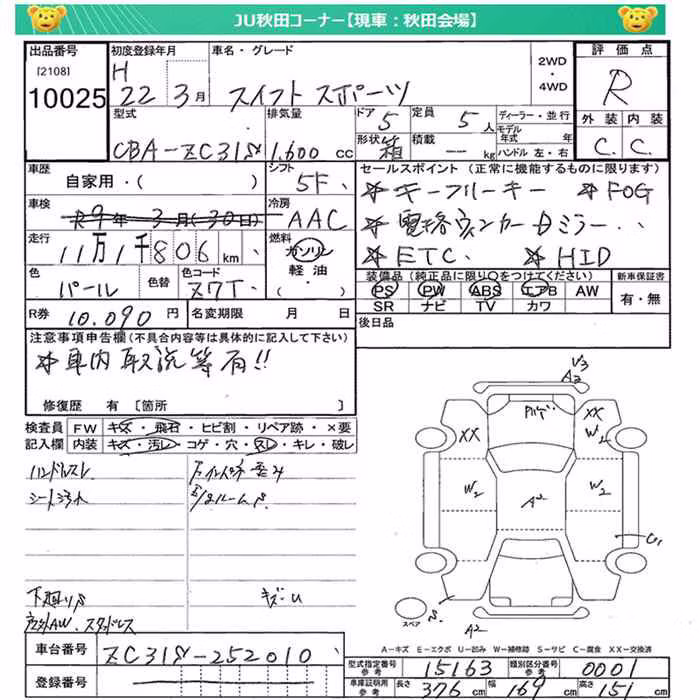 JU秋田コーナー【現車：秋田会場】
出品番号 初度登録年月 車名・グレード 2WD・4WD 評価点
[2108]
10025
H 22 3月 スイフト スポーツ R
型式 排気量 ドア 5 定員 5人 ディーラー・並行 外装 内装
モデル年式 年
CBA-ZC31S 1,600cc 形状 箱 積載 -- kg ハンドル 左・右 C. C.
車歴 自家用・( ) シフト 5F
セールスポイント（正常に機能するものに限ります）
☆キーフリーキー ☆FOG
車検 R9年 3月(30日) 冷房 AAC
☆電格ウィンカーDミラー
走行 11万1千806km 燃料 ガソリン 軽油・( )
☆ETC. ☆HID
色 パール 色替 色コード Z7T.
装備品（純正品に限り○をつけてください） 新車保証書
PS PW ABS エアB AW 有・無
SR ナビ TV カワ
R券 10.090円 名変期限 月 日
後日品
注意事項申告欄（不具合内容等は具体的に記入して下さい）
☆車内取説等有!!
修復歴 有 [箇所 ]
検査員 FW キズ・飛石・ヒビ割・リペア跡・×要
記入欄 内装 キズ・汚レ・コゲ・穴・スレ・キレ・破レ
ハンドルスレ
シート汚れ
下廻りS
キズ・U
社外AW. スタッドレス
V3
A2
XX
XX
W2
W2
W2
A2
U1
S.
スペア
A2
A-キズ E-エクボ U-凹み W-補修跡 S-サビ C-腐食 XX-交換済
車台番号 ZC31S-252010
型式指定番号 参考 15163 類別区分番号 参考 0001
登録番号
車庫証明用 参考 長さ 376cm 幅 169cm 高さ 151cm